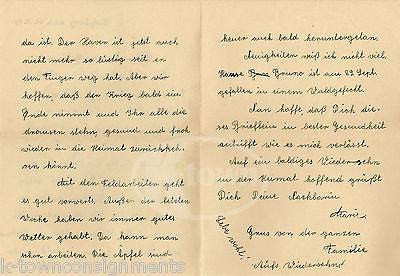 da ist. Der Xaver ist jetzt auch
nicht mehr so lustig seit er
den Finger weg hat. Aber wir
hoffen, daß der Krieg bald ein
Ende nimmt und Ihr alle die
draussen steht, gesund und froh
wieder in die Heimat zurückkeh-
ren könnt.
Mit den Feldarbeiten geht
es gut vorwärts. Außer der letzten
Woche haben wir immer gutes
Wetter gehabt. Da kann man
schon arbeiten. Die Äpfel sind
heuer auch bald heruntergetan.
Neuigkeiten weiß ich nicht viel.
Bruno ist am 29. Sept.
gefallen in einem Waldgefecht.
Nun hoffe, daß Dich die-
ses Brieflein in bester Gesundheit
antrifft wie es mich verläßt.
Auf ein baldiges Wiedersehn
in der Heimat hoffend grüßt
Dich Deine Nachbarin
Marie.
Lebe wohl.
Gruss von der ganzen
Familie
Aufs Wiedersehn!
k-townconsignments